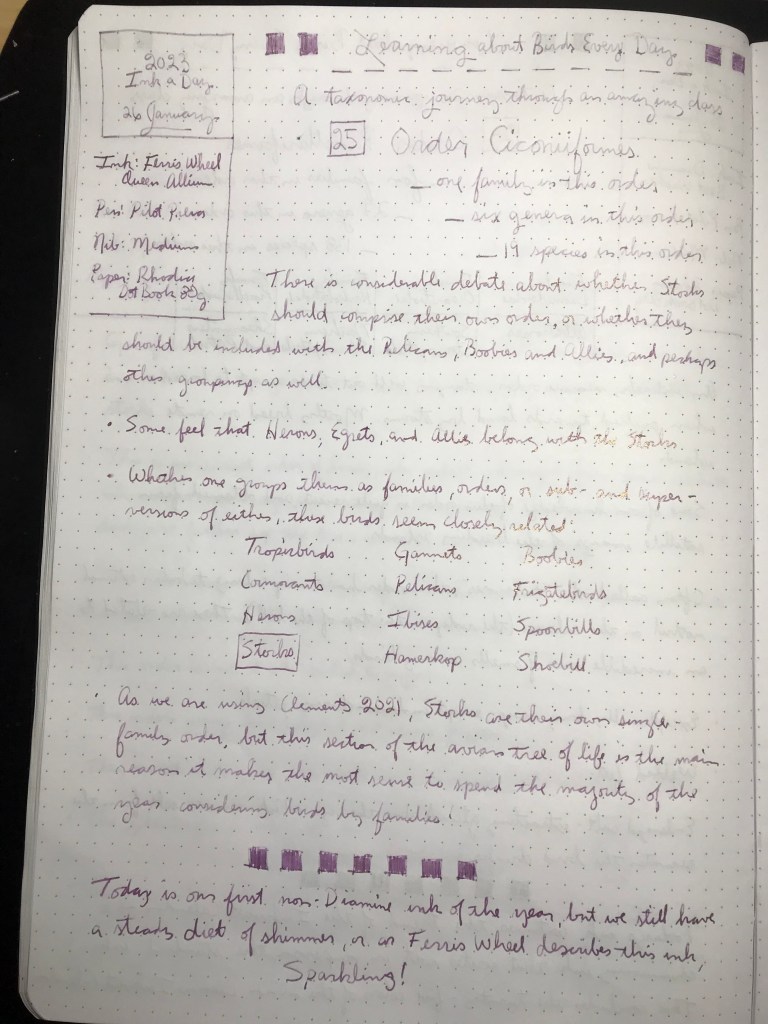 2023
Ink a Day
26 January
Ink: Ferris Wheel
Queen Allium
Pen: Pilot Prera
Nib: Medium
Paper: Rhodia
Dot Book 80g
Learning about Birds Every Day
A taxonomic journey through an amazing class
25 Order Ciconiiformes
— one family in this order
— six genera in this order
— 19 species in this order
There is considerable debate about whether Storks
should comprise their own order, or whether they
should be included with the Pelicans, Boobies and Allies, and perhaps
other groupings as well.
• Some feel that Herons, Egrets, and Allies belong with the Storks.
• Whether one groups them as families, orders, or sub- and super-
versions of either, these birds seem closely related:
Tropicbirds Gannets Boobies
Cormorants Pelicans Frigatebirds
Herons Ibises Spoonbills
Storks Hamerkop Shoebill
• As we are using Clements 2021, Storks are their own single-
family order, but this section of the avian tree of life is the main
reason it makes the most sense to spend the majority of the
year considering birds by families!
Today is our first non-Diamine ink of the year, but we still have
a steady diet of shimmer, or as Ferris Wheel describes this ink,
Sparkling!